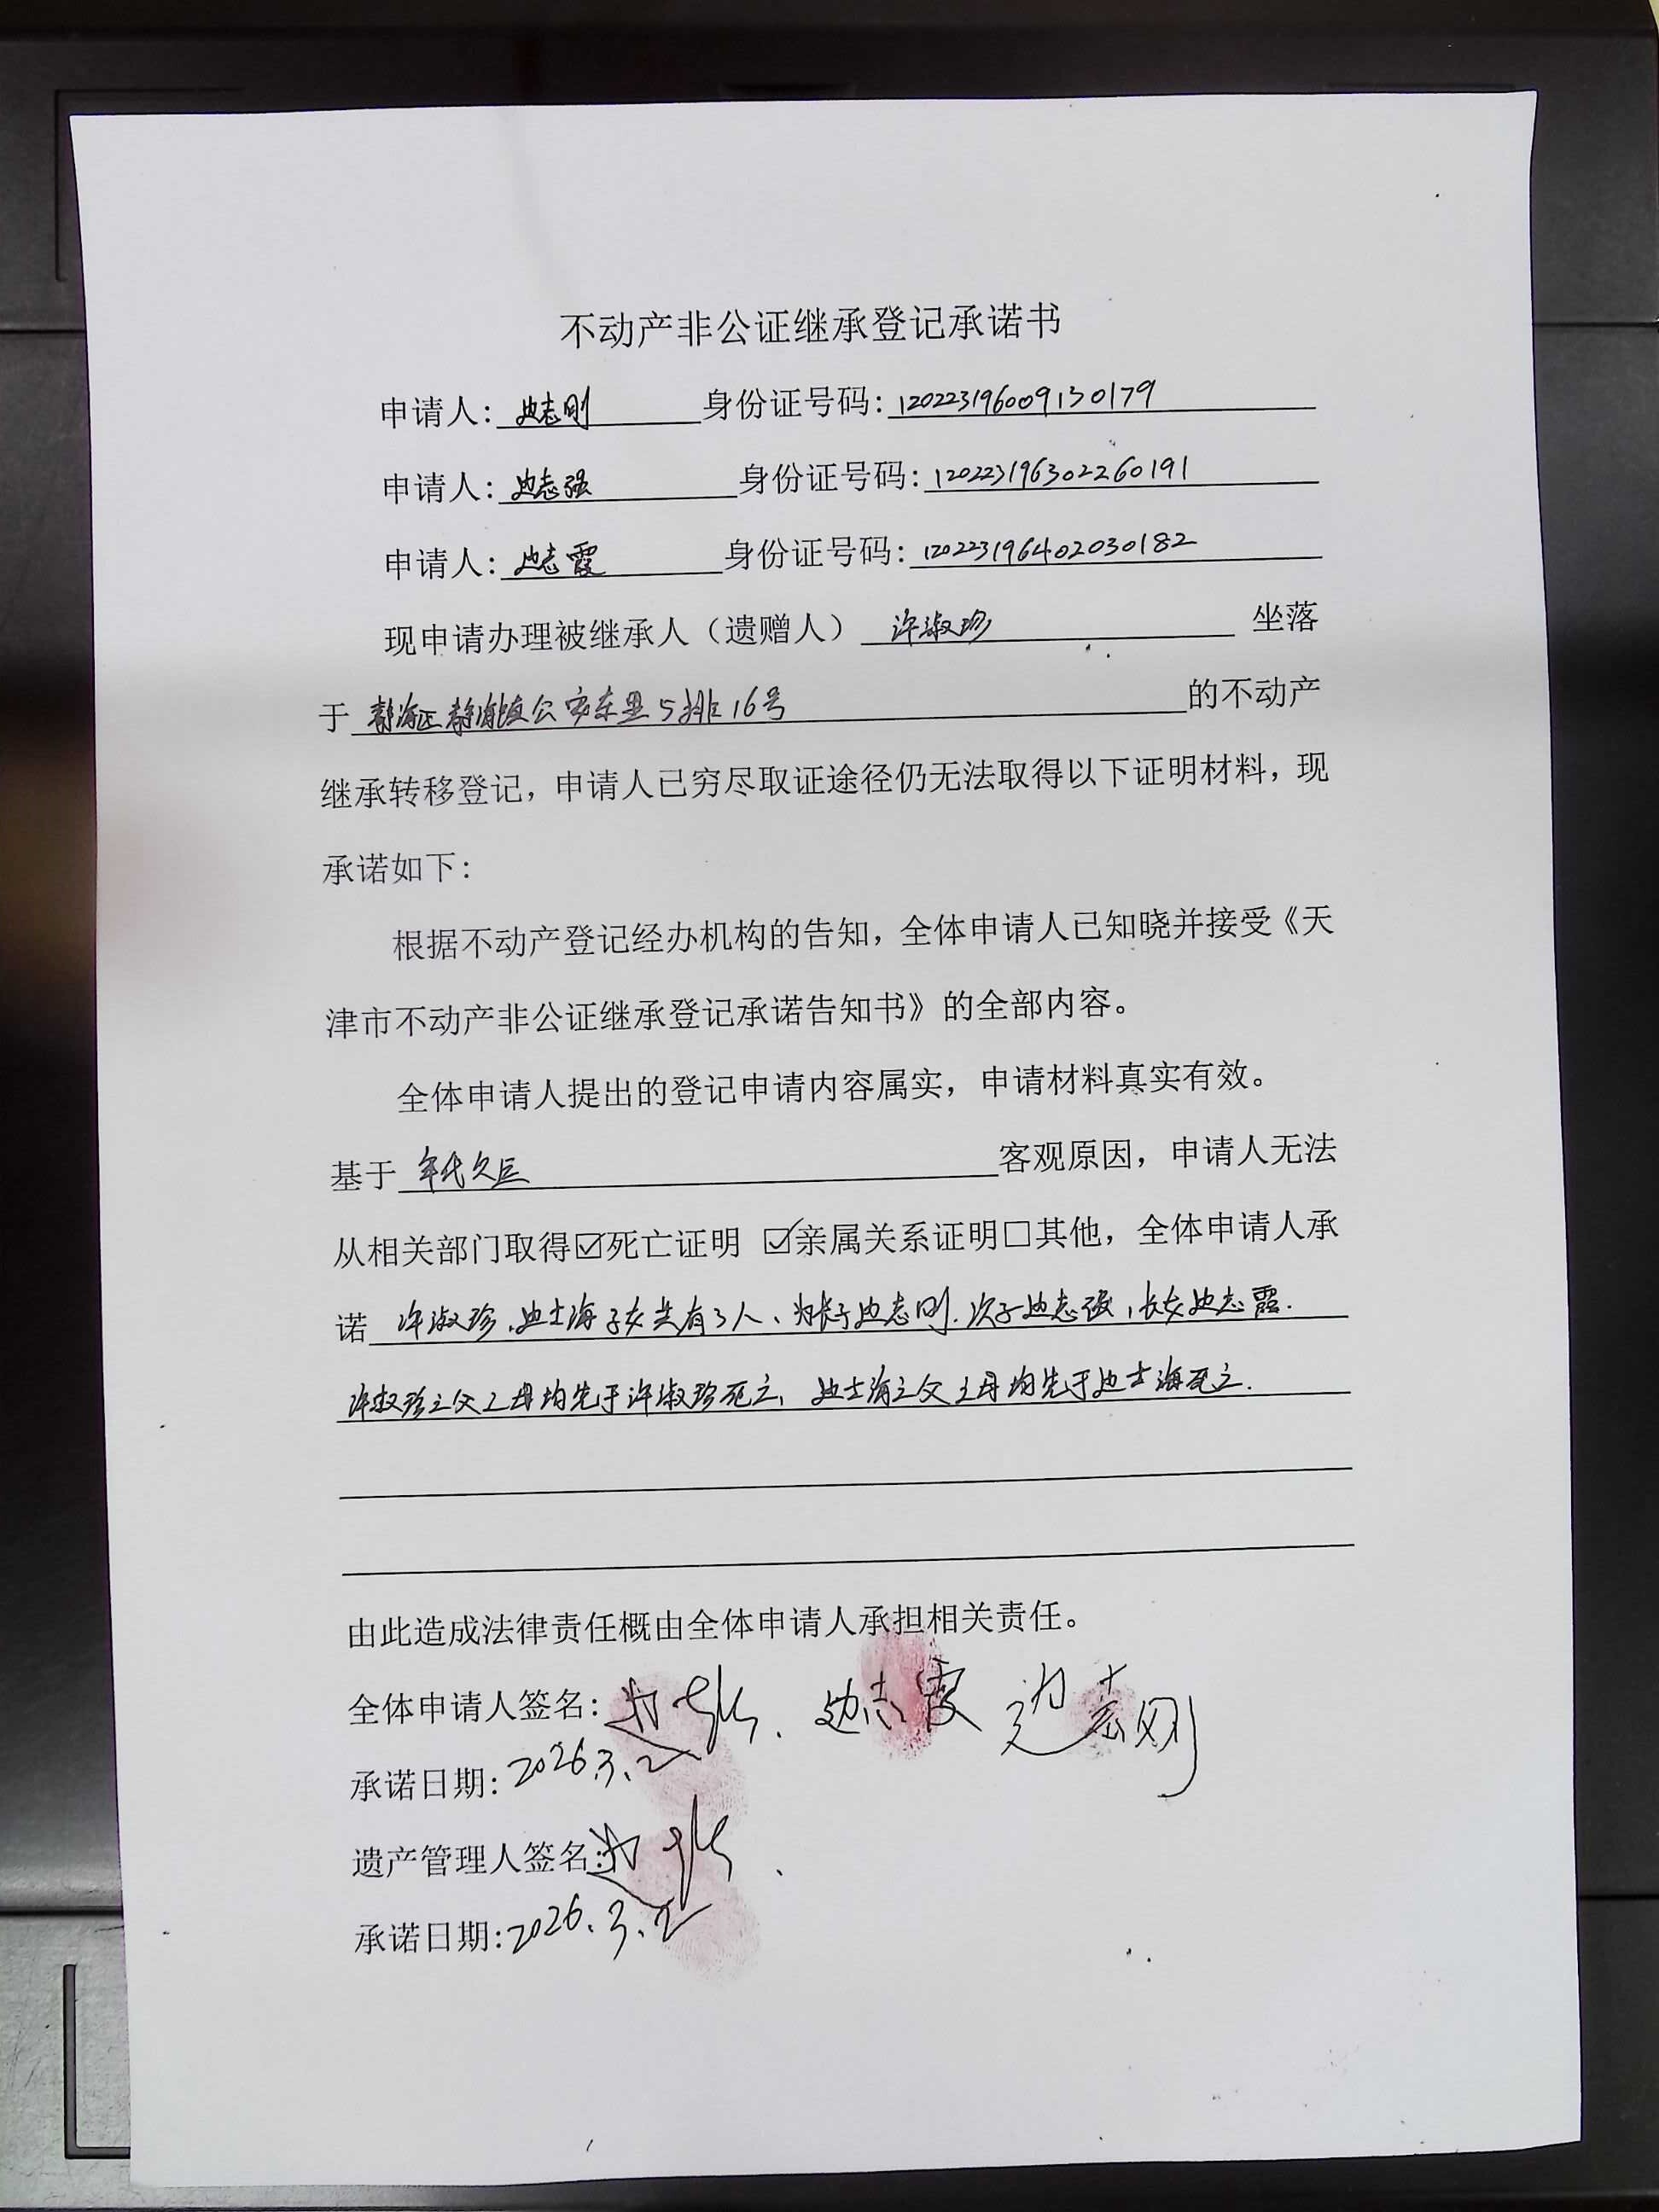 不动产非公证继承登记承诺书
申请人：边志刚 身份证号码：120223196009130179
申请人：边志强 身份证号码：120223196302260191
申请人：边志霞 身份证号码：120223196402030182
现申请办理被继承人（遗赠人） 许淑珍 坐落
于 静海区静海镇公安东里5排16号 的不动产
继承转移登记，申请人已穷尽取证途径仍无法取得以下证明材料，现
承诺如下：
根据不动产登记经办机构的告知，全体申请人已知晓并接受《天
津市不动产非公证继承登记承诺告知书》的全部内容。
全体申请人提出的登记申请内容属实，申请材料真实有效。
基于 年代久远 客观原因，申请人无法
从相关部门取得☑死亡证明 ☑亲属关系证明□其他，全体申请人承
诺 许淑珍、边士海子女共有3人、为长子边志刚、次子边志强，长女边志霞.
许淑珍之父之母均先于许淑珍死亡，边士海之父之母均先于边士海死亡.
由此造成法律责任概由全体申请人承担相关责任。
全体申请人签名：边志强、边志霞 边志刚
承诺日期：2026.3.2
遗产管理人签名：边志强.
承诺日期：2026.3.2